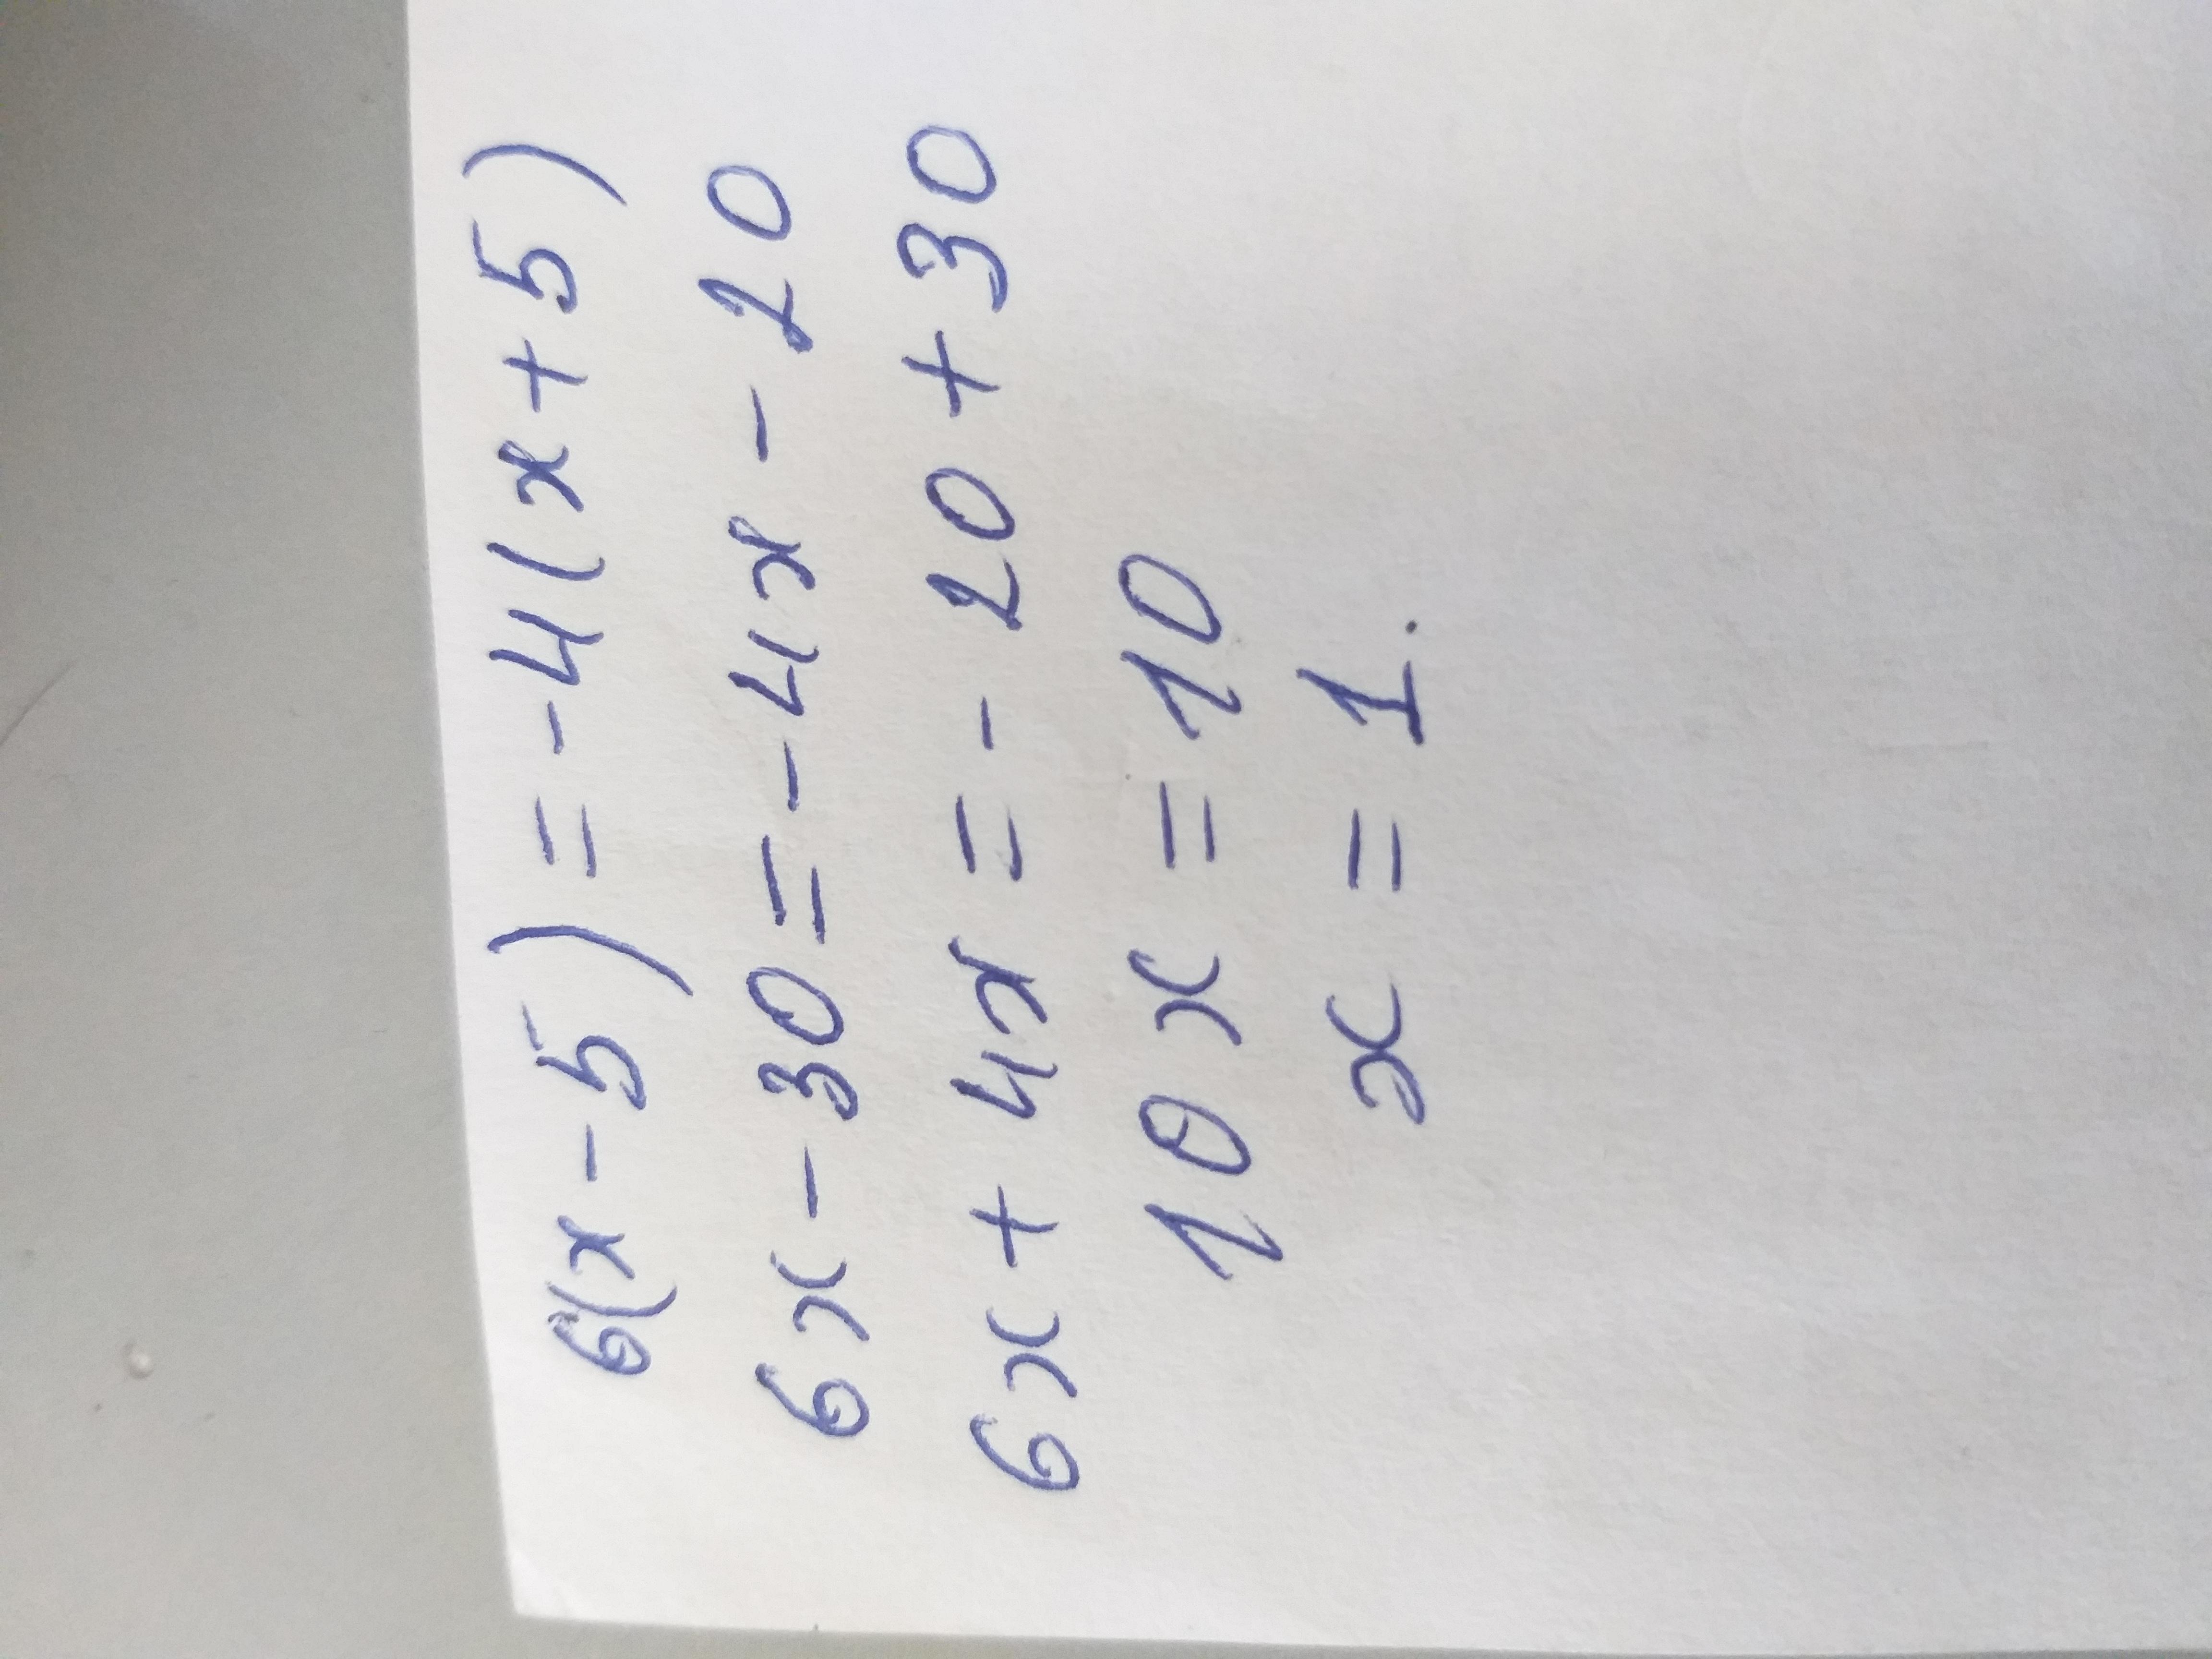 6(x-5)=-4(x+5)
6x-30=-4x-20
6x+4x=-20+30
10x=10
x=1.